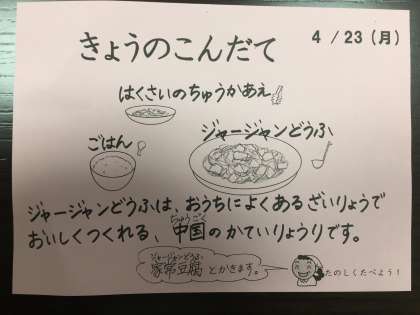 きょうのこんだて
4 / 23 (月)
はくさいのちゅうかあえ
ごはん
ジャージャンどうふ
ジャージャンどうふは、おうちによくあるざいりょうで
おいしくつくれる、中国のかていりょうりです。
ちゅうごく
ジャージャンどうふ
家常豆腐とかきます。
たのしくたべよう!